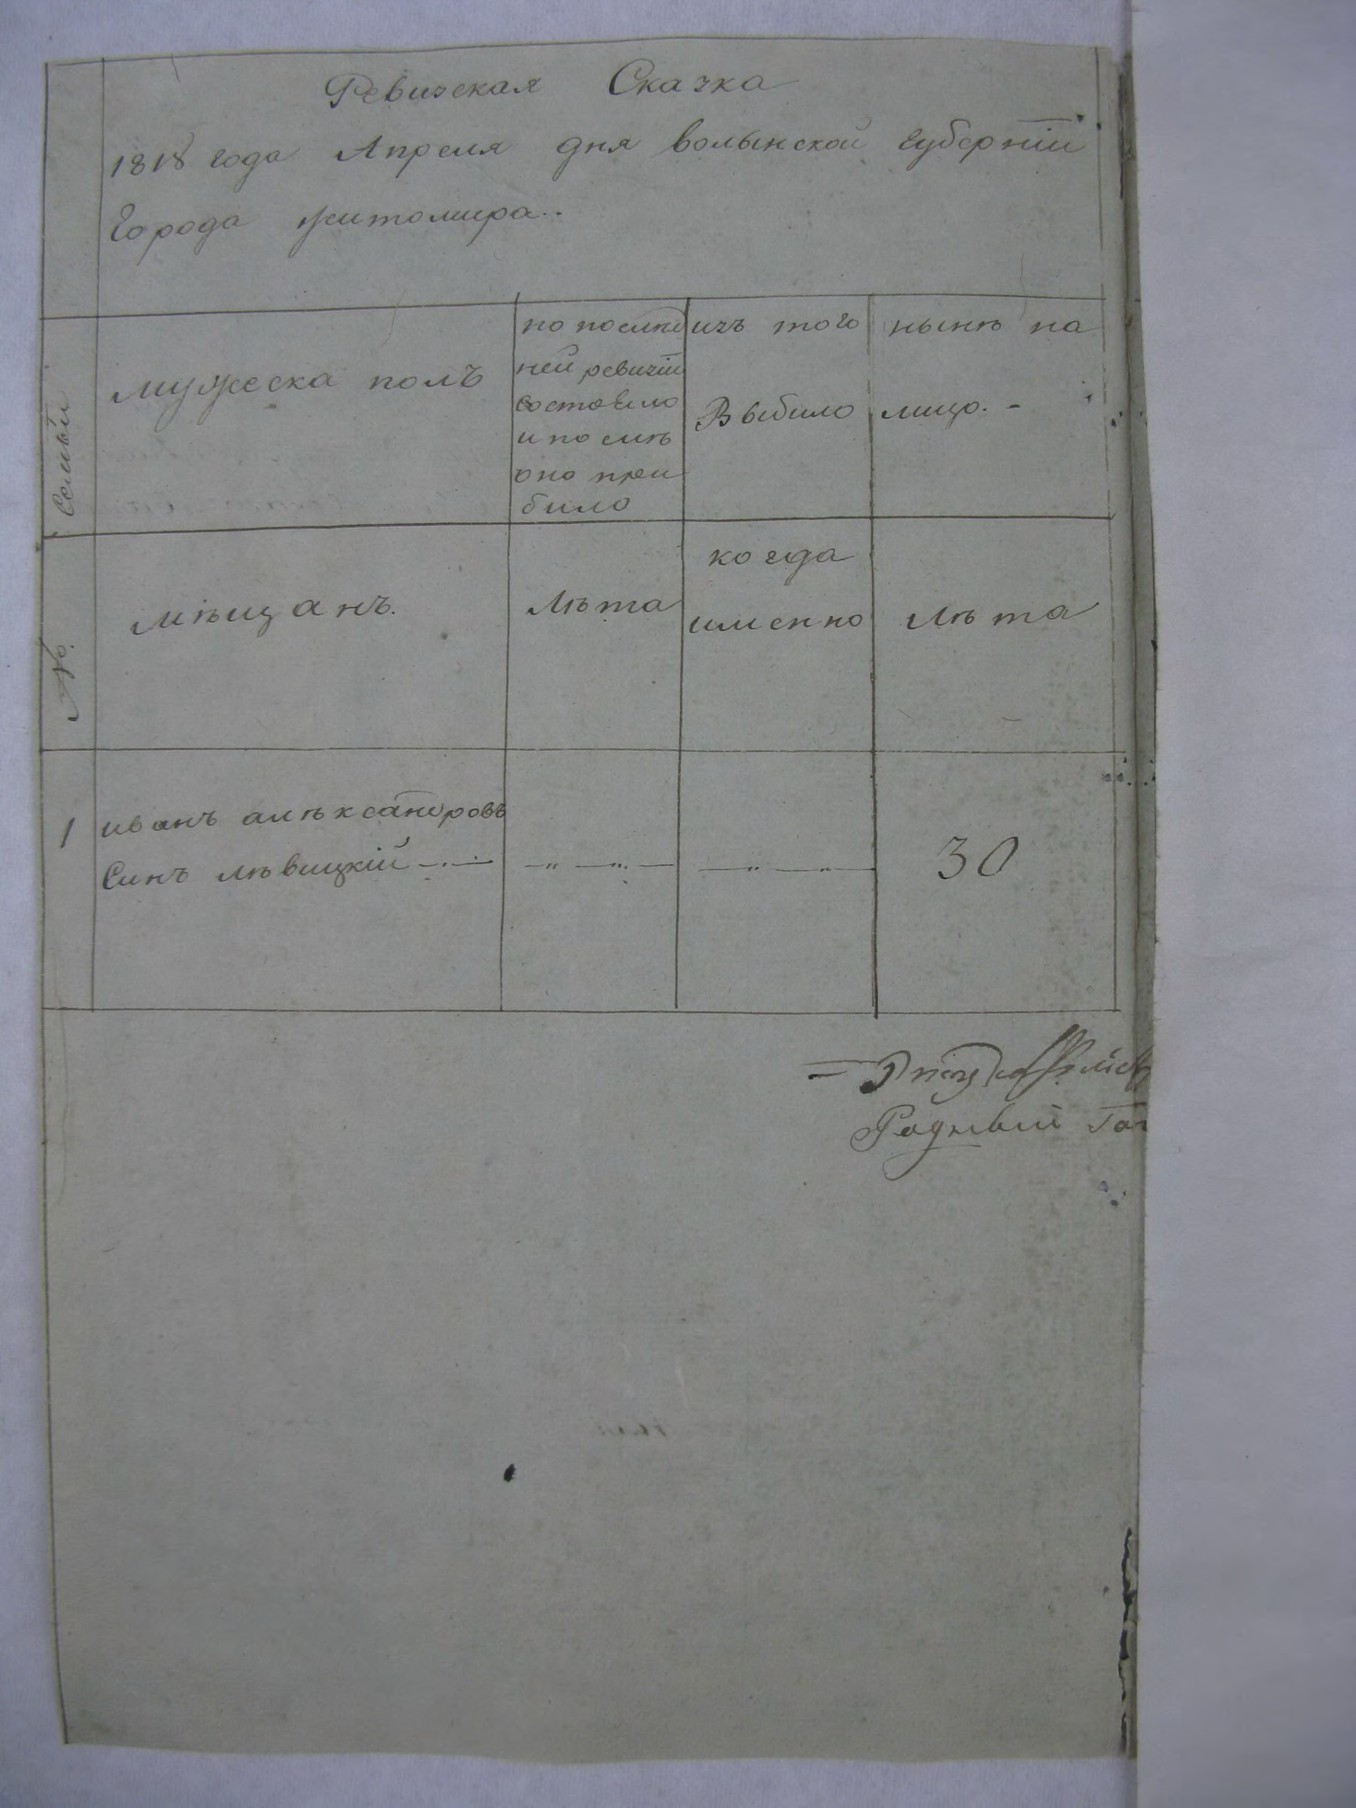 Ревизская Сказка
1818 года Апреля дня волынской губернiи
Города житомира..
№. Семьи
мужеска полъ
по послѣд
ней ревизiи
состояло
и послѣ
оно при
било
изъ того
Выбило
нынѣ на
лицо. -
мѣщанъ.
Лѣта
когда
именно
лѣта
1
иванъ алѣксандровъ
Синъ лѣвицкiй
30
Радный